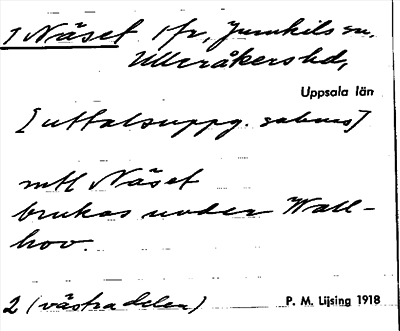 1 Näset 1 fr, Jumkils sn,
Ulleråkers hd,
Uppsala län
[uttalsuppg. saknas]
mtl Näset
brukas under Wall-
hov.
2 (västra delen)
P. M. Lijsing 1918